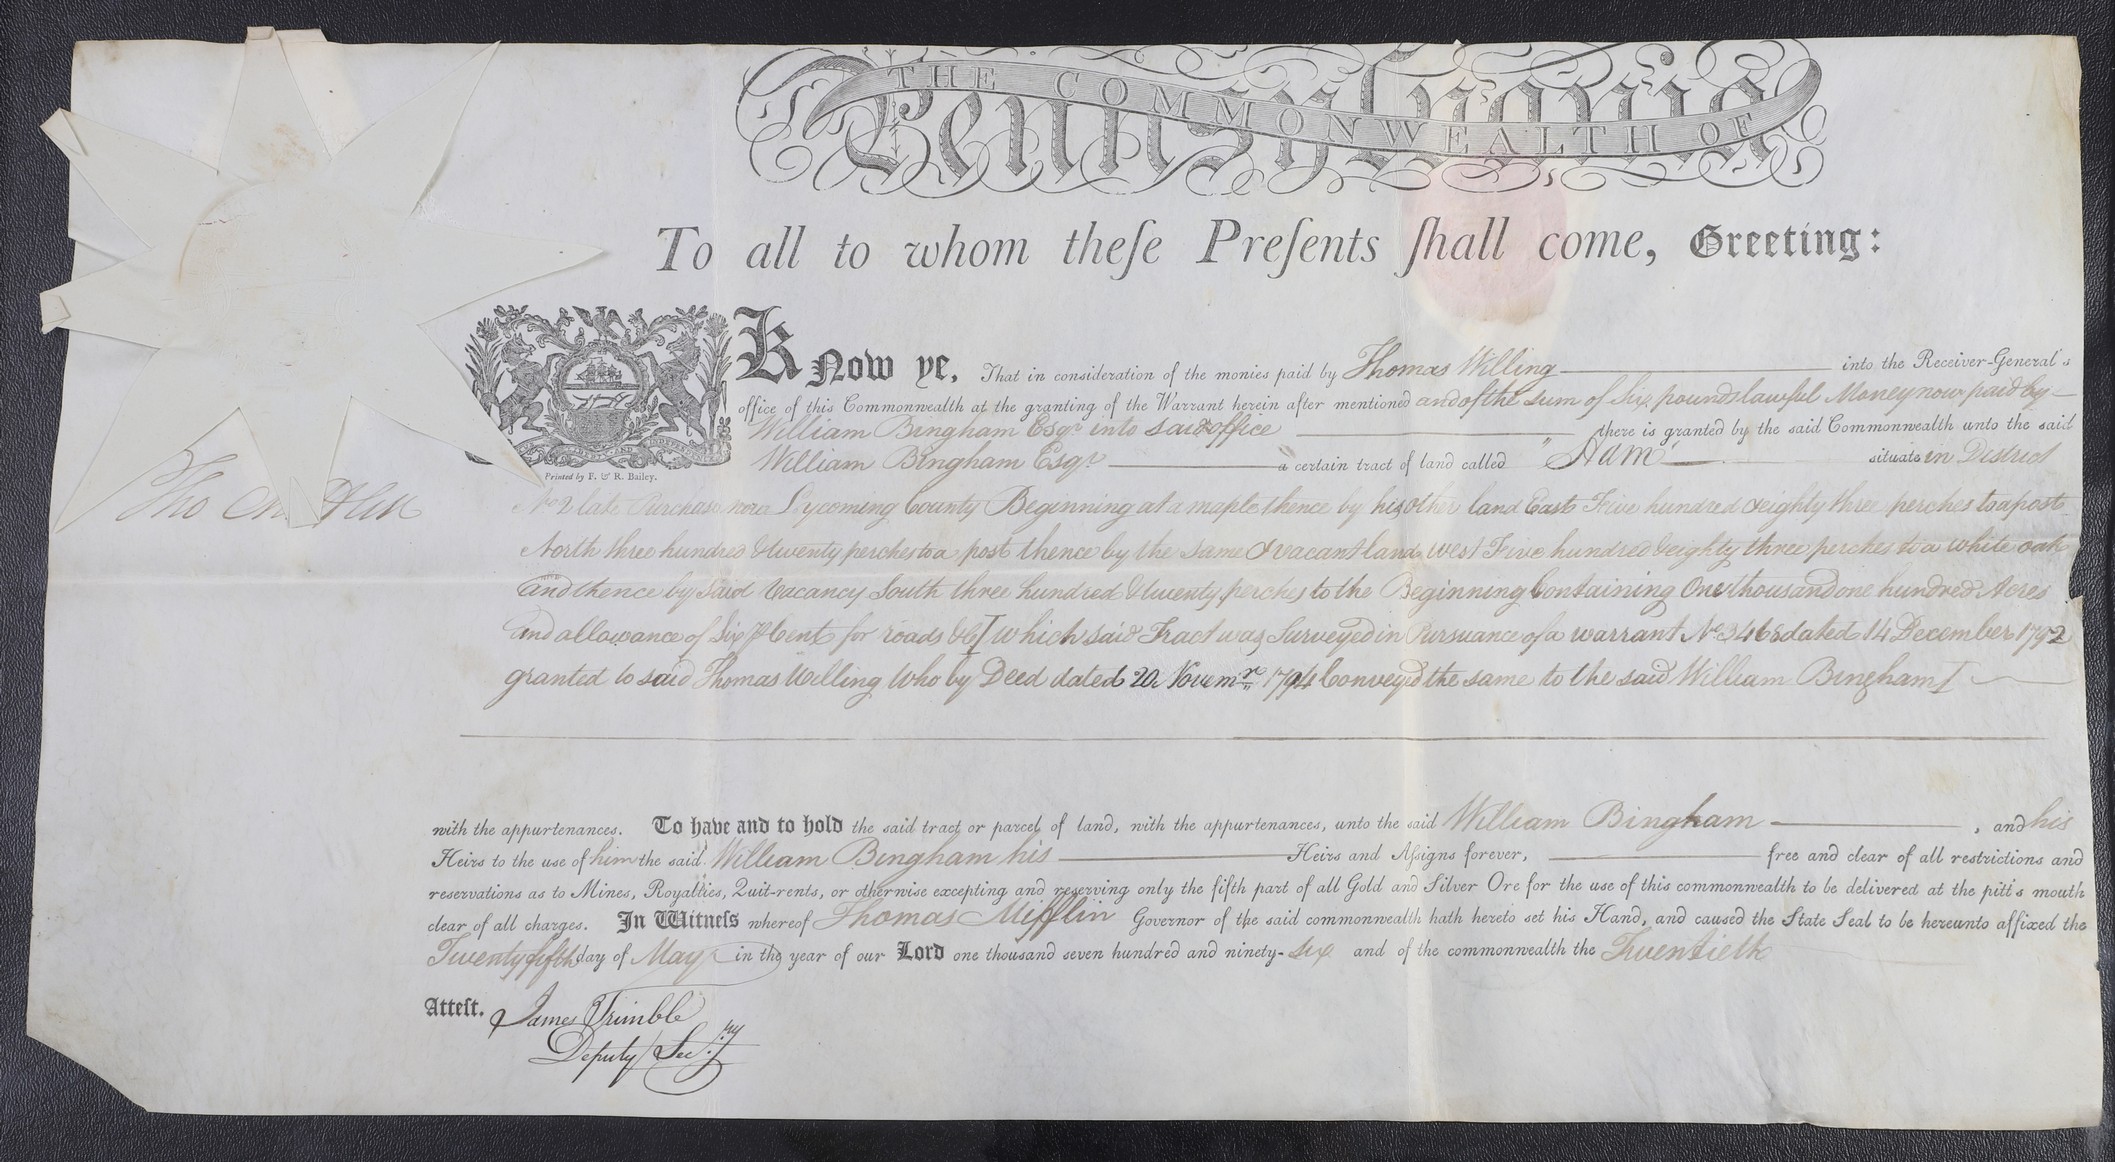 THE COMMONWEALTH OF
Pennsylvania
To all to whom theſe Preſents ſhall come, Greeting:
Know ye, That in consideration of the monies paid by Thomas Willing into the Receiver-General's
office of this Commonwealth at the granting of the Warrant herein after mentioned and of the sum of Six pounds lawful Money now paid by
William Bingham Esqr. into said office there is granted by the said Commonwealth unto the said
William Bingham Esqr. a certain tract of land called "Adam" situate in District
Printed by F. & R. Bailey.
No 2 late Purchase now Lycoming County Beginning at a maple thence by his other land East Five hundred & eighty three perches to a post
North three hundred & twenty perches to a post thence by the same & vacant land West Five hundred & eighty three perches to a white oak
and thence by said Vacancy South three hundred & twenty perches to the Beginning Containing One thousand one hundred Acres
and allowance of Six P Cent for roads &c [which said Tract was Surveyed in Pursuance of a warrant No 3468 dated 14 December 1792
granted to said Thomas Willing Who by Deed dated 20 Novemr. 1794 Conveyed the same to the said William Bingham]
Tho Mifflin
with the appurtenances. To have and to hold the said tract or parcel of land, with the appurtenances, unto the said William Bingham, and his
Heirs to the use of him the said William Bingham his Heirs and Aſsigns forever, free and clear of all restrictions and
reservations as to Mines, Royalties, Quit-rents, or otherwise excepting and reserving only the fifth part of all Gold and Silver Ore for the use of this commonwealth to be delivered at the pitt's mouth
clear of all charges. In Witneſs whereof Thomas Mifflin Governor of the said commonwealth hath hereto set his Hand, and caused the State Seal to be hereunto affixed the
Twenty fifth day of May in the year of our Lord one thousand seven hundred and ninety-six and of the commonwealth the Twentieth
Atteſt. James Trimble
Deputy Sec:ry